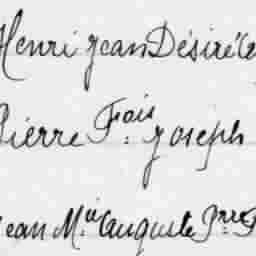 Henri Jean Désiré
Pierre F.ois Joseph
Jean M.ie Auguste